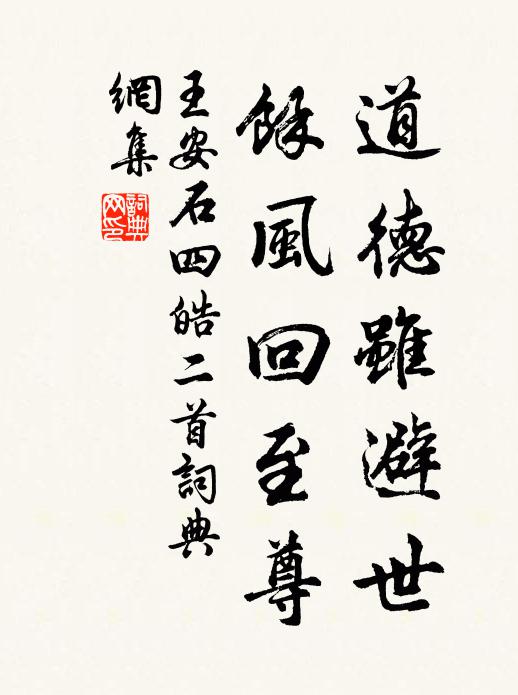 道德雖避世
餘風回至尊
王安石四皓二首詞典
網集
詞典
网印